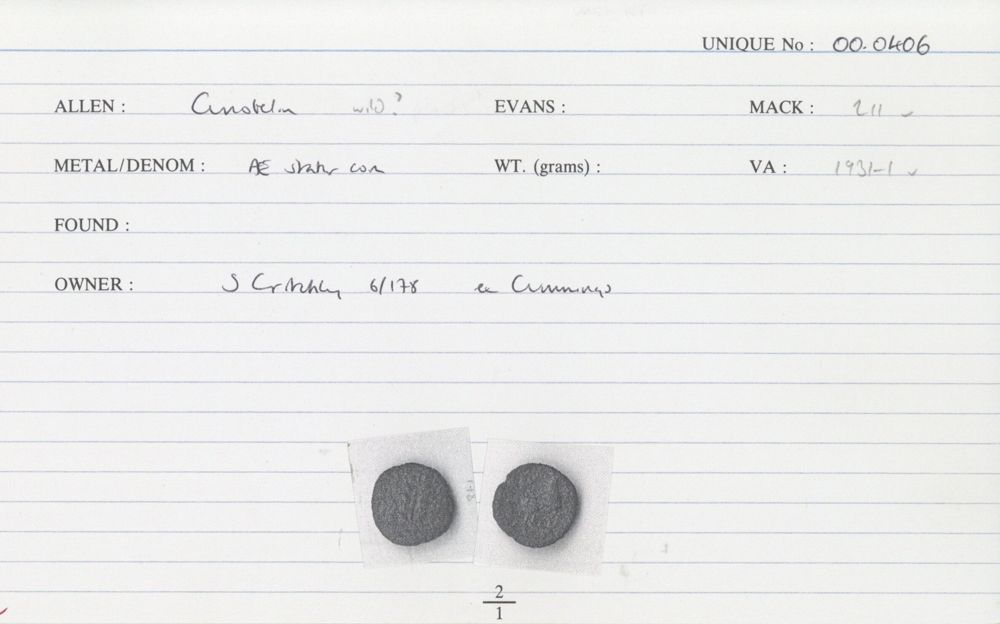 UNIQUE No : 00.0406
ALLEN : Cunobelin wild? EVANS : MACK : 211 ✓
METAL/DENOM : Æ stater core WT. (grams) : VA : 1931-1 ✓
FOUND :
OWNER : S Critchley 6/178 ex Cummings
178
2
1